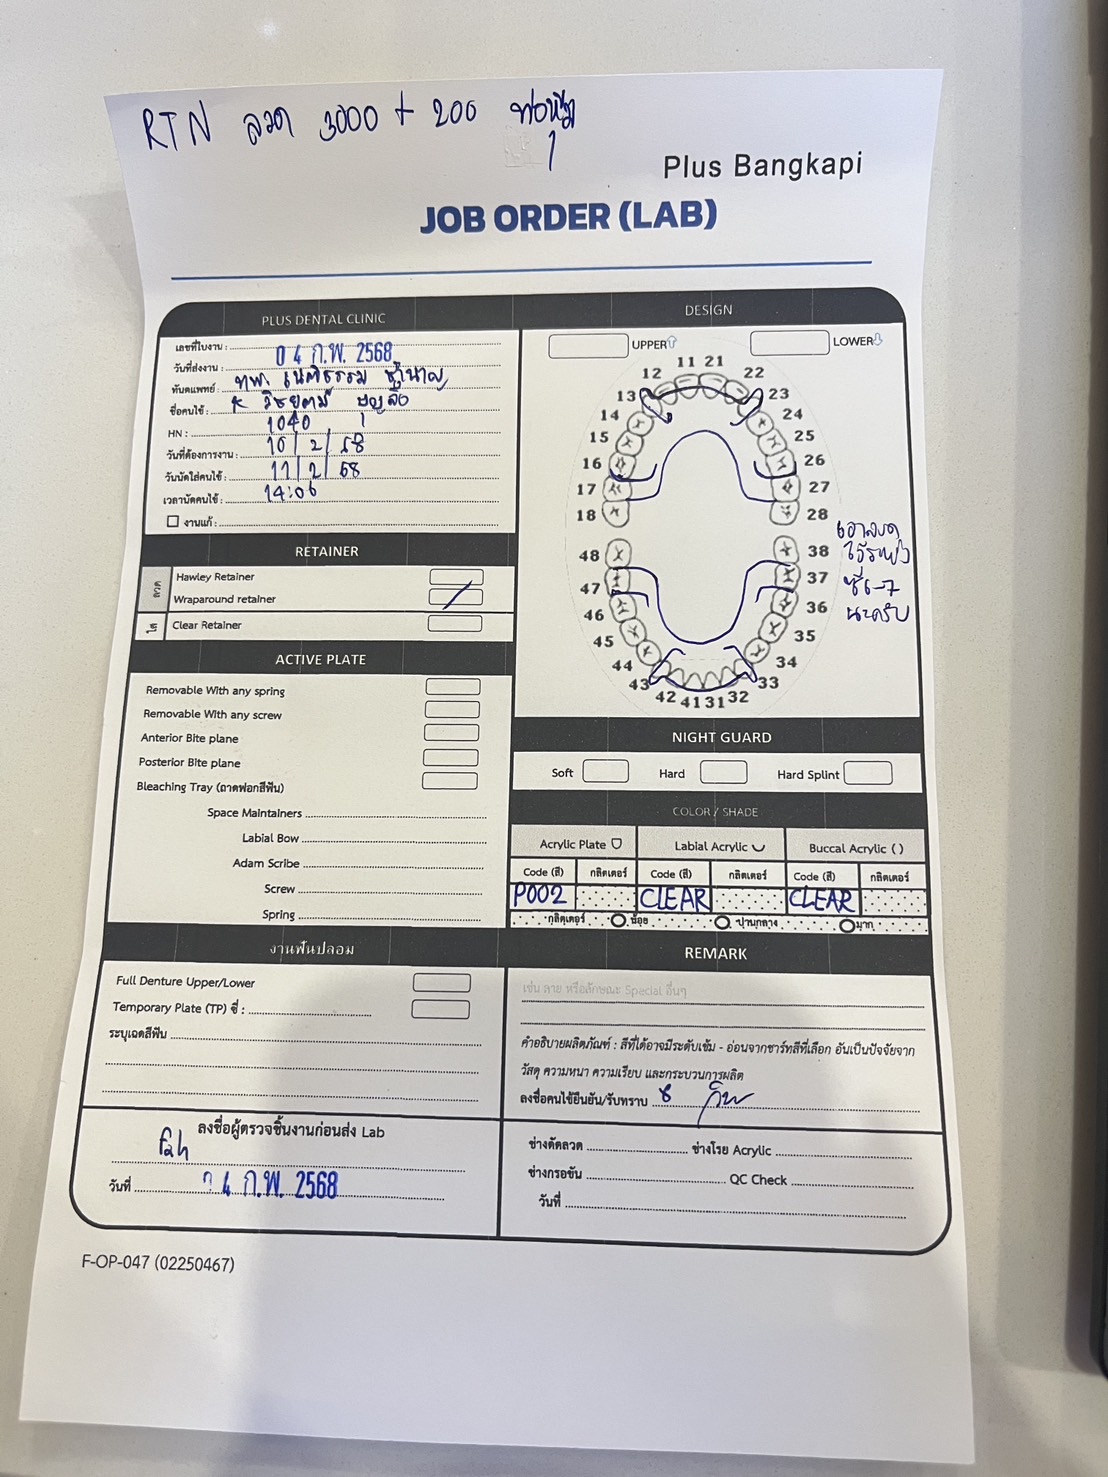 RTN ลวด 3000 + 200 ท่อหุ้ม
Plus Bangkapi
JOB ORDER (LAB)
PLUS DENTAL CLINIC
เลขที่ใบงาน :
วันที่ส่งงาน : 04 ก.พ. 2568
ทันตแพทย์ : ทพ. เนติธรรม
ชื่อคนไข้ :
HN : 1040
วันที่ต้องการงาน : 10/2/68
วันนัดใส่คนไข้ : 11/2/68
เวลานัดคนไข้ : 14:00
งานแก้ :
RETAINER
ลวด
Hawley Retainer
Wraparound retainer
ใส
Clear Retainer
ACTIVE PLATE
Removable With any spring
Removable With any screw
Anterior Bite plane
Posterior Bite plane
Bleaching Tray (ถาดฟอกสีฟัน)
Space Maintainers
Labial Bow
Adam Scribe
Screw
Spring
งานฟันปลอม
Full Denture Upper/Lower
Temporary Plate (TP) ซี่ :
ระบุเฉดสีฟัน
ลงชื่อผู้ตรวจชิ้นงานก่อนส่ง Lab
fah
วันที่ 04 ก.พ. 2568
DESIGN
UPPER
LOWER
11 21
12 22
13 23
14 24
15 25
16 26
17 27
18 28
48 38
47 37
46 36
45 35
44 34
43 33
42 41 31 32
เอาลวด
ไว้ระหว่าง
ซี่6-7
นะครับ
NIGHT GUARD
Soft Hard Hard Splint
COLOR / SHADE
Acrylic Plate Labial Acrylic Buccal Acrylic ( )
Code (สี) กลิตเตอร์ Code (สี) กลิตเตอร์ Code (สี) กลิตเตอร์
P002 CLEAR CLEAR
กลิตเตอร์ น้อย ปานกลาง มาก
REMARK
เช่น ลาย หรือลักษณะ Special อื่นๆ
คำอธิบายผลิตภัณฑ์ : สีที่ได้อาจมีระดับเข้ม - อ่อนจากชาร์ทสีที่เลือก อันเป็นปัจจัยจาก
วัสดุ ความหนา ความเรียบ และกระบวนการผลิต
ลงชื่อคนไข้ยืนยัน/รับทราบ
ช่างดัดลวด ช่างโรย Acrylic
ช่างกรอขัน QC Check
วันที่
F-OP-047 (02250467)